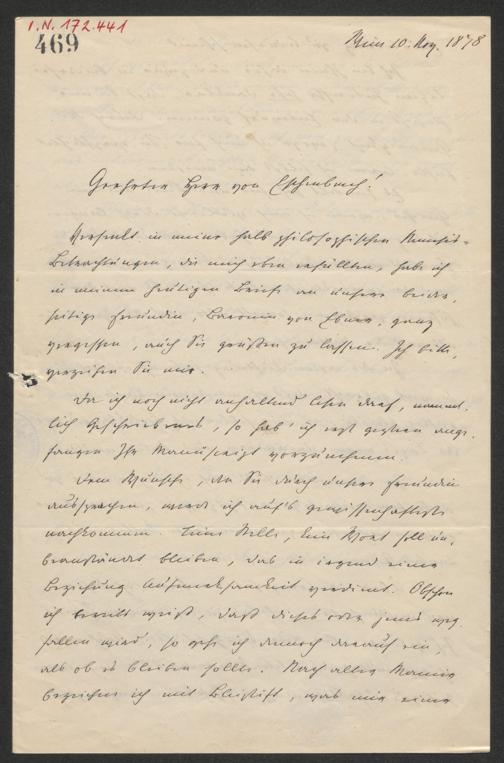 I.N. 172.441
469
Wien 10. Nov. 1878
Geehrter Herr von Eschenbach!
Versenkt in meine halb philosophischen Kunst-
Betrachtungen, die mich eben erfüllten, habe ich
in meinem heutigen Briefe an unsere beider-
seitige Freundin, Baronin von Ebner, ganz
vergessen, auch Sie grüßen zu lassen. Ich bitte,
verzeihen Sie mir.
Da ich noch nicht anhaltend lesen darf, nament-
lich Geschriebenes, so hab' ich erst gestern ange-
fangen Ihr Manuscript vorzunehmen.
Dem Wunsche, den Sie durch unsere Freundin
aussprachen, werde ich auf's gewissenhafteste
nachkommen. Keine Stelle, kein Wort soll un-
beanständet bleiben, das in irgend einer
Beziehung Aufmerksamkeit verdient. Obschon
ich bereits weiß, daß dieses oder jenes weg-
fallen wird, so gehe ich dennoch darauf ein,
als ob es bleiben sollte. Nach alter Manier
bezeichne ich mit Bleistift, was mir einer